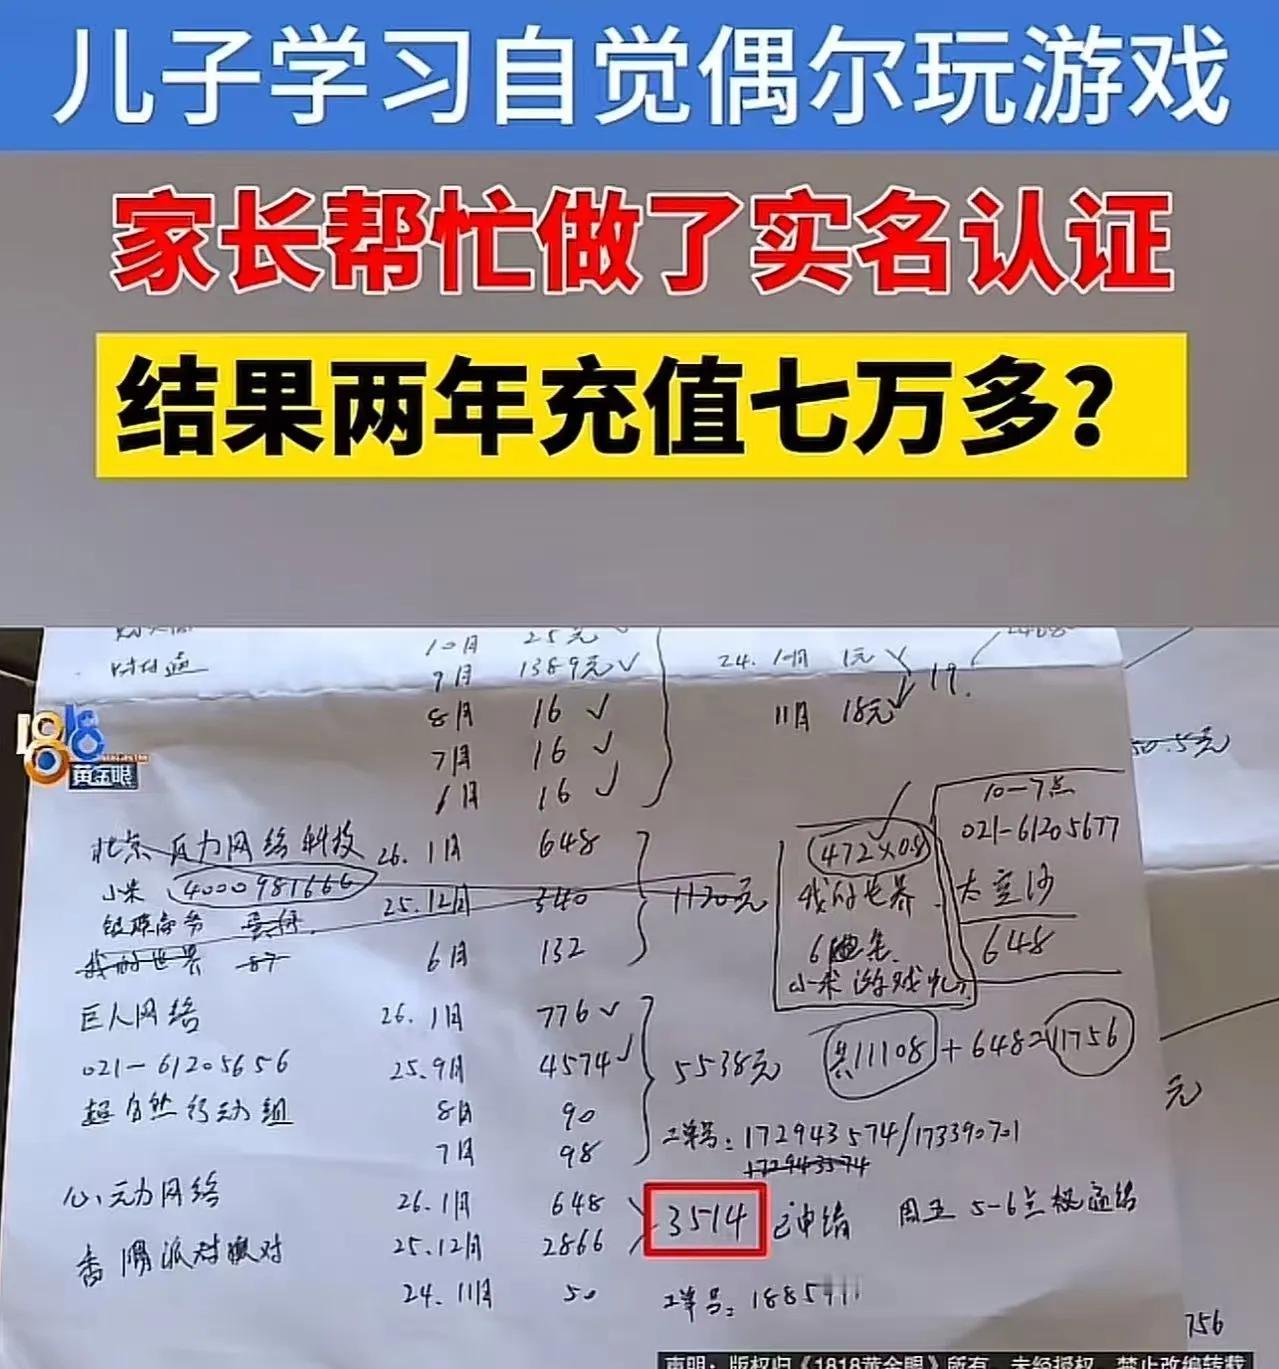 儿子学习自觉偶尔玩游戏
家长帮忙做了实名认证
结果两年充值七万多？
10月 25元
财付通 9月 1389元✓
24.10月 1元
8月 16 ✓
11月 18元
19.
7月 16 ✓
6月 16 ✓
50.5元
1818
黄金眼
10-7点
北京 力网络科技 26.1月 648
472×0.8
021-61205677
小米 4000981666 25.12月 340 1120元
我的世界
太空沙
银联商务
我的世界 87 6月 132
648
小米游戏
巨人网络 26.1月 776✓
021-61205656 25.9月 4574✓ 5538元
共11108+648=11756
超自然行动组 8月 90
元
7月 98
工单号：172943574/173390701
172943574
心动网络 26.1月 648
3514 已申请 周五 5-6点
香肠派对 派对 25.12月 2866
24.11月 50
工单号：1885911
756
声明：版权归《1818黄金眼》所有，未经授权，禁止改编转载